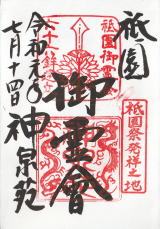 祇園
祇園御霊会
六十六鉾
御霊會
祇園祭発祥之地
神泉苑
令和元年
七月十四日